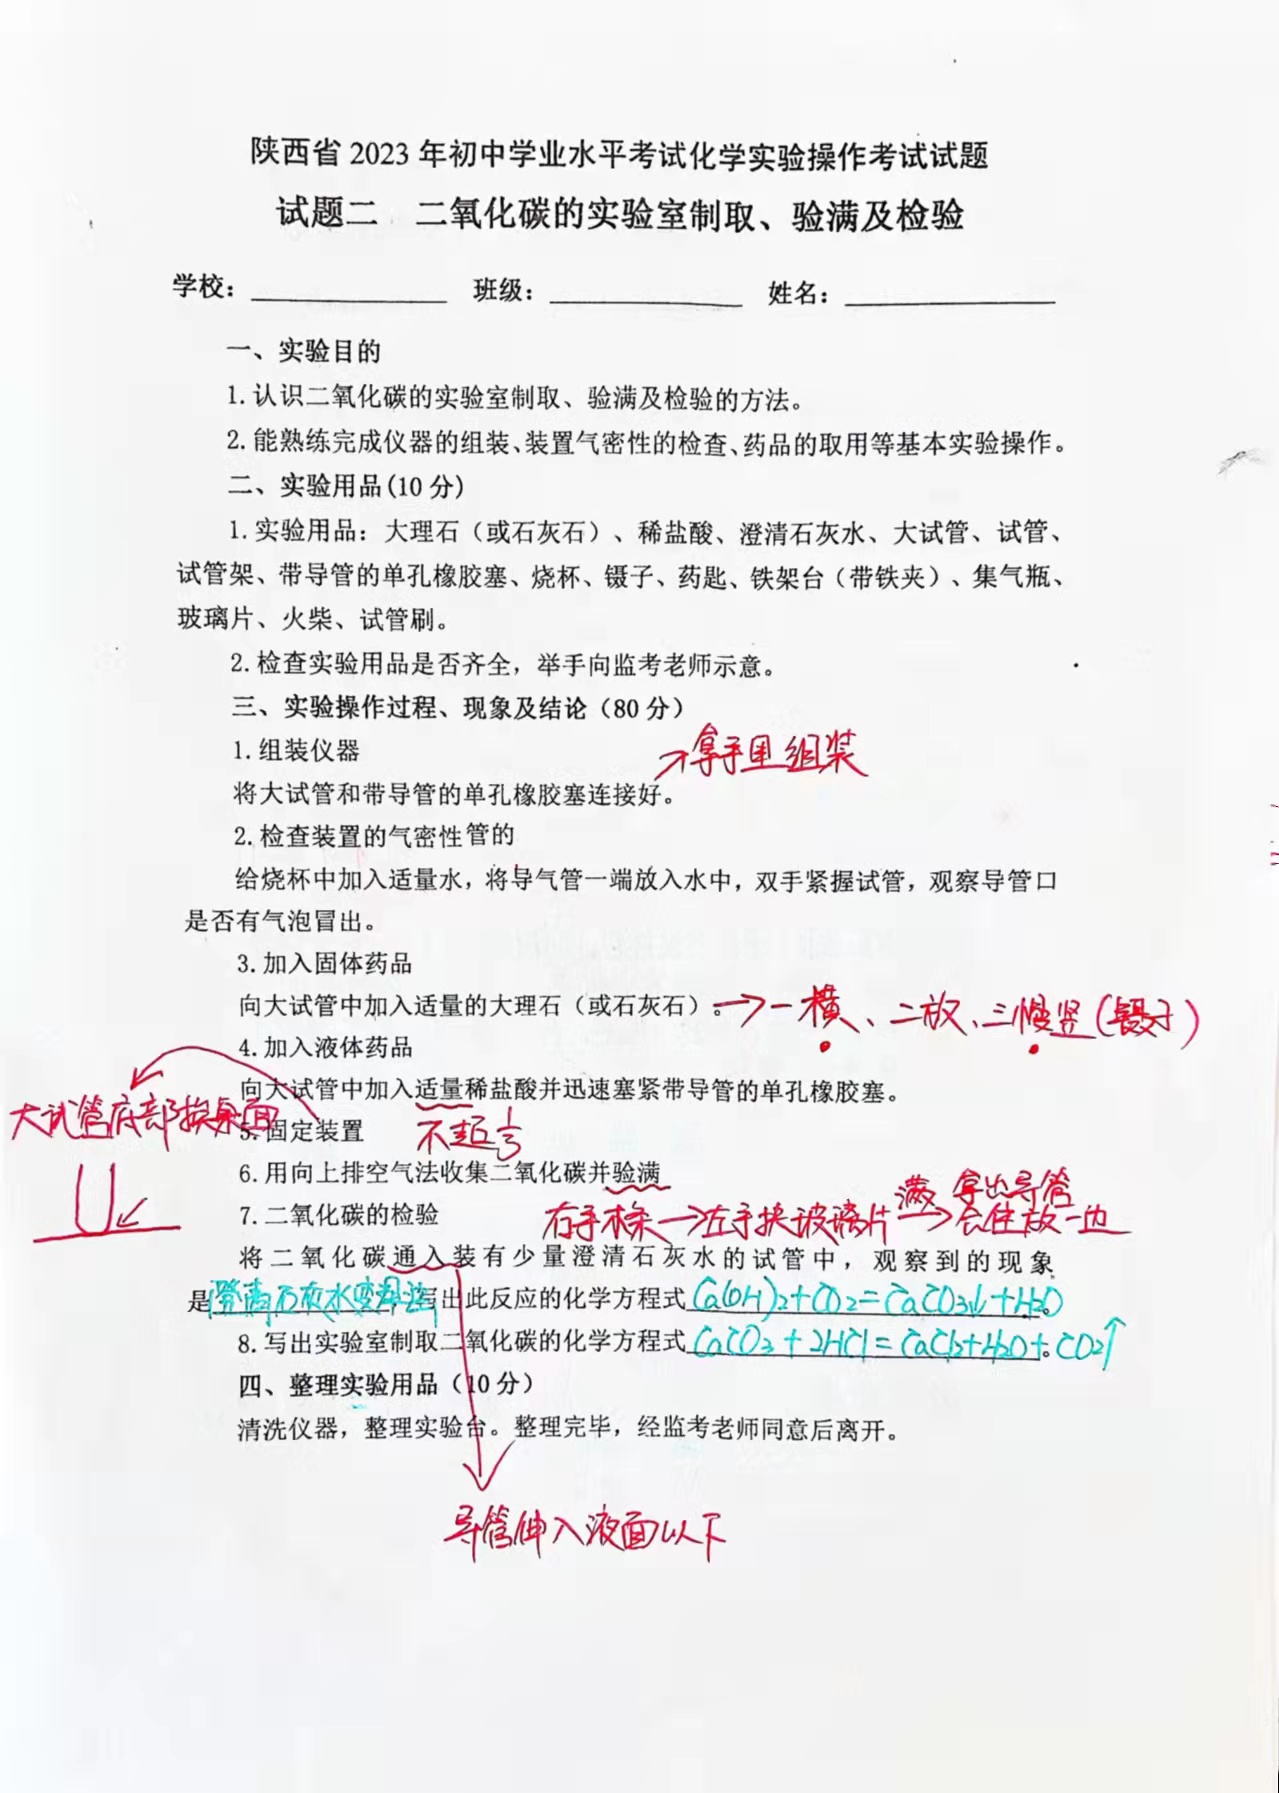 陕西省 2023 年初中学业水平考试化学实验操作考试试题
试题二 二氧化碳的实验室制取、验满及检验
学校： 班级： 姓名：
一、实验目的
1.认识二氧化碳的实验室制取、验满及检验的方法。
2.能熟练完成仪器的组装、装置气密性的检查、药品的取用等基本实验操作。
二、实验用品(10 分)
1.实验用品：大理石（或石灰石）、稀盐酸、澄清石灰水、大试管、试管、
试管架、带导管的单孔橡胶塞、烧杯、镊子、药匙、铁架台（带铁夹）、集气瓶、
玻璃片、火柴、试管刷。
2.检查实验用品是否齐全，举手向监考老师示意。
三、实验操作过程、现象及结论（80 分）
1.组装仪器
→拿手里组装
将大试管和带导管的单孔橡胶塞连接好。
2.检查装置的气密性管的
给烧杯中加入适量水，将导气管一端放入水中，双手紧握试管，观察导管口
是否有气泡冒出。
3.加入固体药品
向大试管中加入适量的大理石（或石灰石）。→一横、二放、三慢竖(镊子)
4.加入液体药品
向大试管中加入适量稀盐酸并迅速塞紧带导管的单孔橡胶塞。
大试管底部挨桌面
5.固定装置 不超1/3
6.用向上排空气法收集二氧化碳并验满
7.二氧化碳的检验
右手木条→左手挟玻璃片 满→ 拿出导管
放一边
将二氧化碳通入装有少量澄清石灰水的试管中，观察到的现象
是澄清石灰水变浑浊 写出此反应的化学方程式Ca(OH)2+CO2=CaCO3↓+H2O。
8.写出实验室制取二氧化碳的化学方程式CaCO3+2HCl=CaCl2+H2O+CO2↑。
四、整理实验用品（10 分）
清洗仪器，整理实验台。整理完毕，经监考老师同意后离开。
导管伸入液面以下